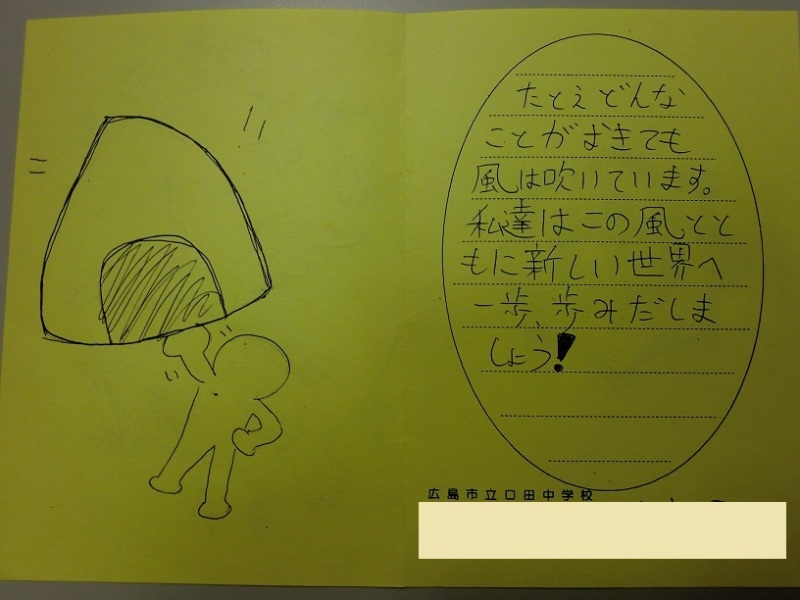 たとえどんな
ことがおきても
風は吹いています。
私達はこの風とと
もに新しい世界へ
一歩、歩みだしま
しょう!
広島市立口田中学校